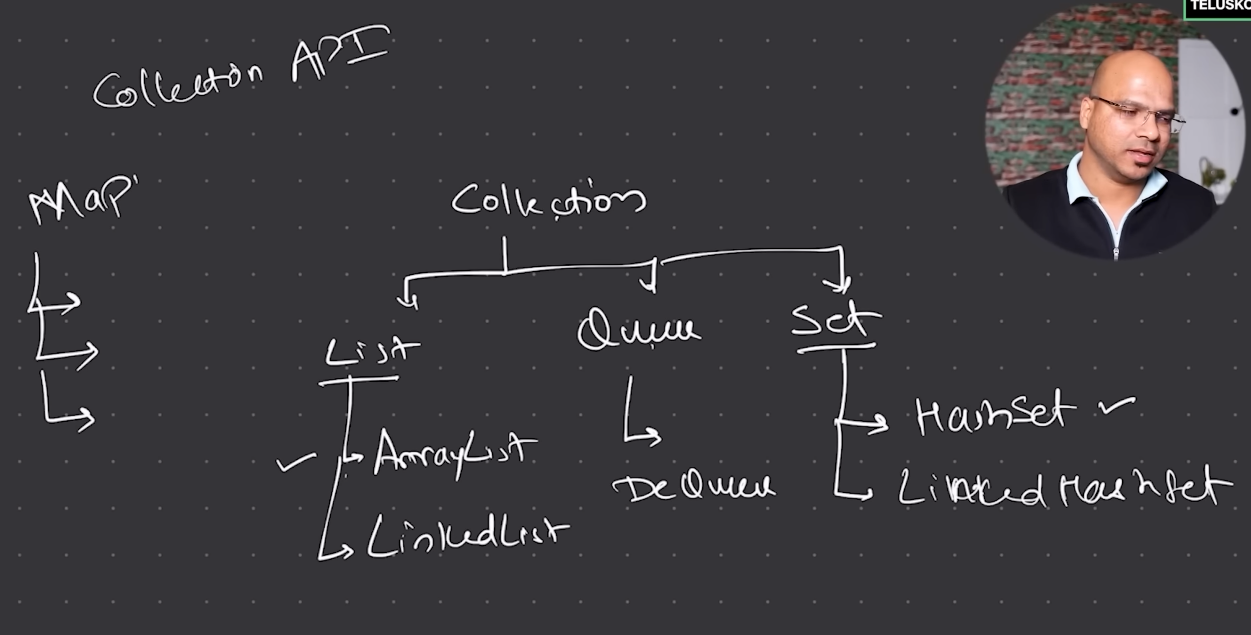 TELUSKO
Collection API
Map
Collection
List
Queue
Set
ArrayList
LinkedList
DeQueue
HashSet
LinkedHashSet